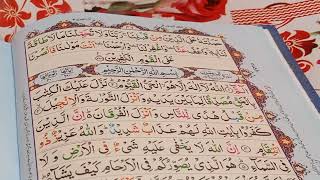 مِنْ قَبْلِنَا رَبَّنَا وَلَا تُحَمِّلْنَا مَا لَا طَاقَةَ
وَاغْفِرْ لَنَا وَارْحَمْنَا اَنْتَ مَوْلٰىنَا فَانْصُرْنَا
عَلَى الْقَوْمِ الْكٰفِرِيْنَ
بِسْمِ اللّٰهِ الرَّحْمٰنِ الرَّحِيْمِ
اللّٰهُ لَاۤ اِلٰهَ اِلَّا هُوَ الْحَيُّ الْقَيُّوْمُ نَزَّلَ عَلَيْكَ الْكِتٰبَ
بِالْحَقِّ مُصَدِّقًا لِّمَا بَيْنَ يَدَيْهِ وَاَنْزَلَ التَّوْرٰىةَ وَالْاِنْجِيْلَ
مِنْ قَبْلُ هُدًى لِّلنَّاسِ وَاَنْزَلَ الْفُرْقَانَ اِنَّ الَّذِيْنَ
كَفَرُوْا بِاٰيٰتِ اللّٰهِ لَهُمْ عَذَابٌ شَدِيْدٌ وَاللّٰهُ عَزِيْزٌ ذُو
انْتِقَامٍ اِنَّ اللّٰهَ لَا يَخْفٰى عَلَيْهِ شَيْءٌ فِى الْاَرْضِ وَلَا
فِى السَّمَآءِ هُوَ الَّذِيْ يُصَوِّرُكُمْ فِى الْاَرْحَامِ كَيْفَ يَشَآءُ